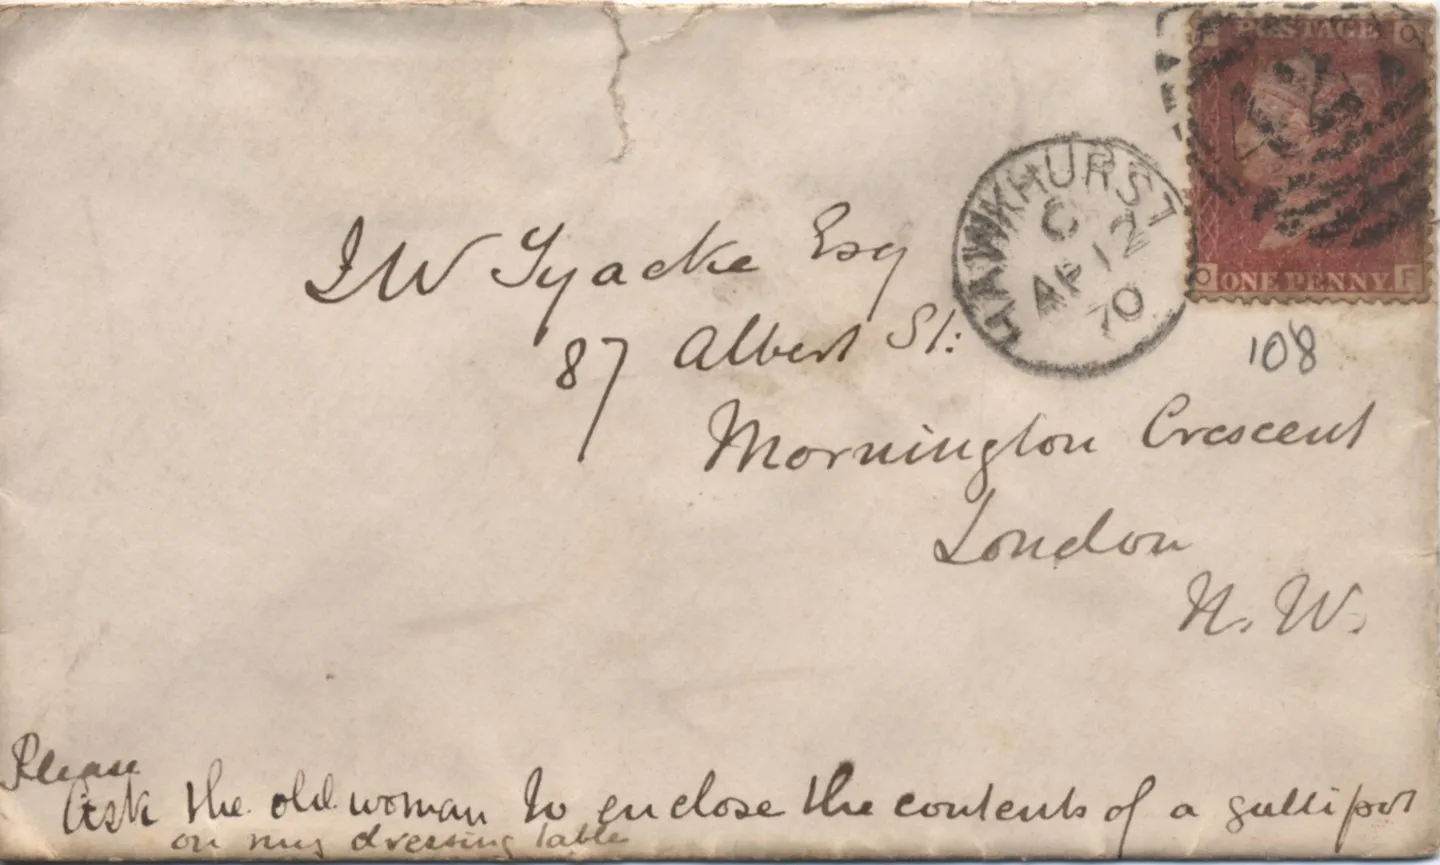 F POSTAGE O
O ONE PENNY. F
HAWKHURST
C
AP 12
70
108
J W Tyacke Esq
87 Albert St:
Mornington Crescent
London
N. W.
Please
Ask the old woman to enclose the contents of a gallipot
on my dressing table